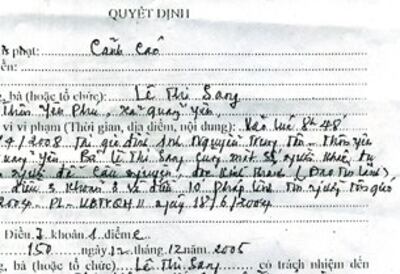 QUYẾT ĐỊNH
phạt: Cảnh Cáo
ền:
bà (hoặc tổ chức): Lê Thị Sang
thôn Yên Phú, xã quảng yên,
vi vi phạm (Thời gian, địa điểm, nội dung): Vào lúc 8h 48
/4/2008 Tại gia đình anh Nguyễn Trung Tôn - Thôn yên
quảng Yên. Bà Lê Thị Sang cùng một số người khác, tụ
người để Cầu nguyện, đọc Kinh thánh (Đạo Tin lành)
điều 3 khoản 3 và điều 10 Pháp lệnh Tín ngưỡng tôn giáo
2004 - PL - UBTVQH 11 ngày 18/6/2004
Điều 7. khoản 1. điểm c
150 ngày 12 tháng 12 năm 2005
bà (hoặc tổ chức) Lê Thị Sang có trách nhiệm đến